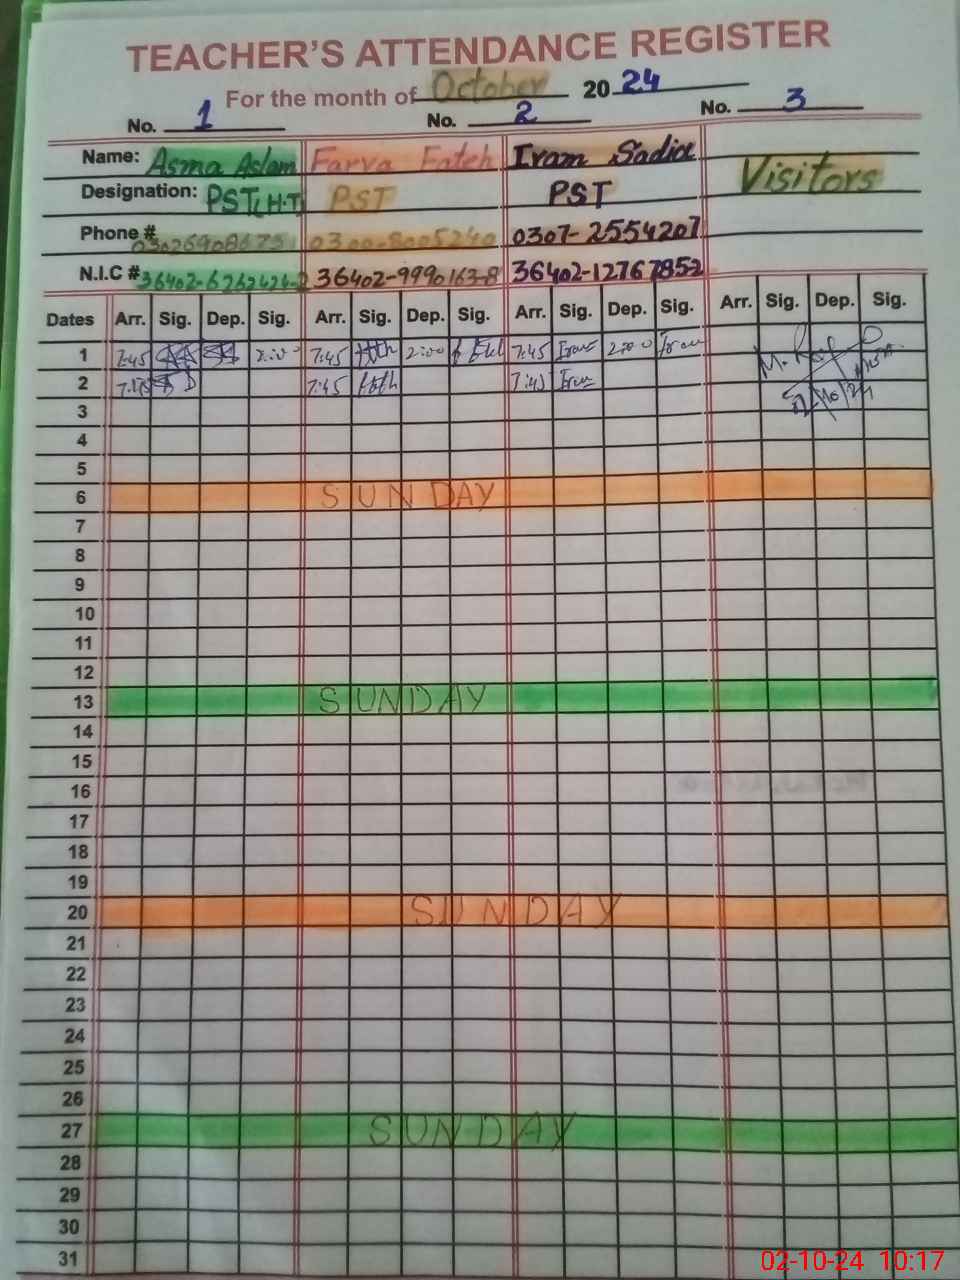 TEACHER'S ATTENDANCE REGISTER
For the month of October 2024
No. 1 No. 2 No. 3
Name: Asma Aslam Farva Fateh Iram Sadia Visitors
Designation: PST(H.T) PST PST
Phone # 0300-8005240 0307-2554207
N.I.C # 36402-6262424-2 36402-9990163-8 36402-12767852
Dates Arr. Sig. Dep. Sig. Arr. Sig. Dep. Sig. Arr. Sig. Dep. Sig. Arr. Sig. Dep. Sig.
1 7:45 2:00 7:45 2:00 7:45 Iram 2:00 Iram
2 7:45 7:45 7:45 Iram
3
4
5
6 SUNDAY
7
8
9
10
11
12
13 SUNDAY
14
15
16
17
18
19
20 SUNDAY
21
22
23
24
25
26
27 SUNDAY
28
29
30
31
02-10-24 10:17